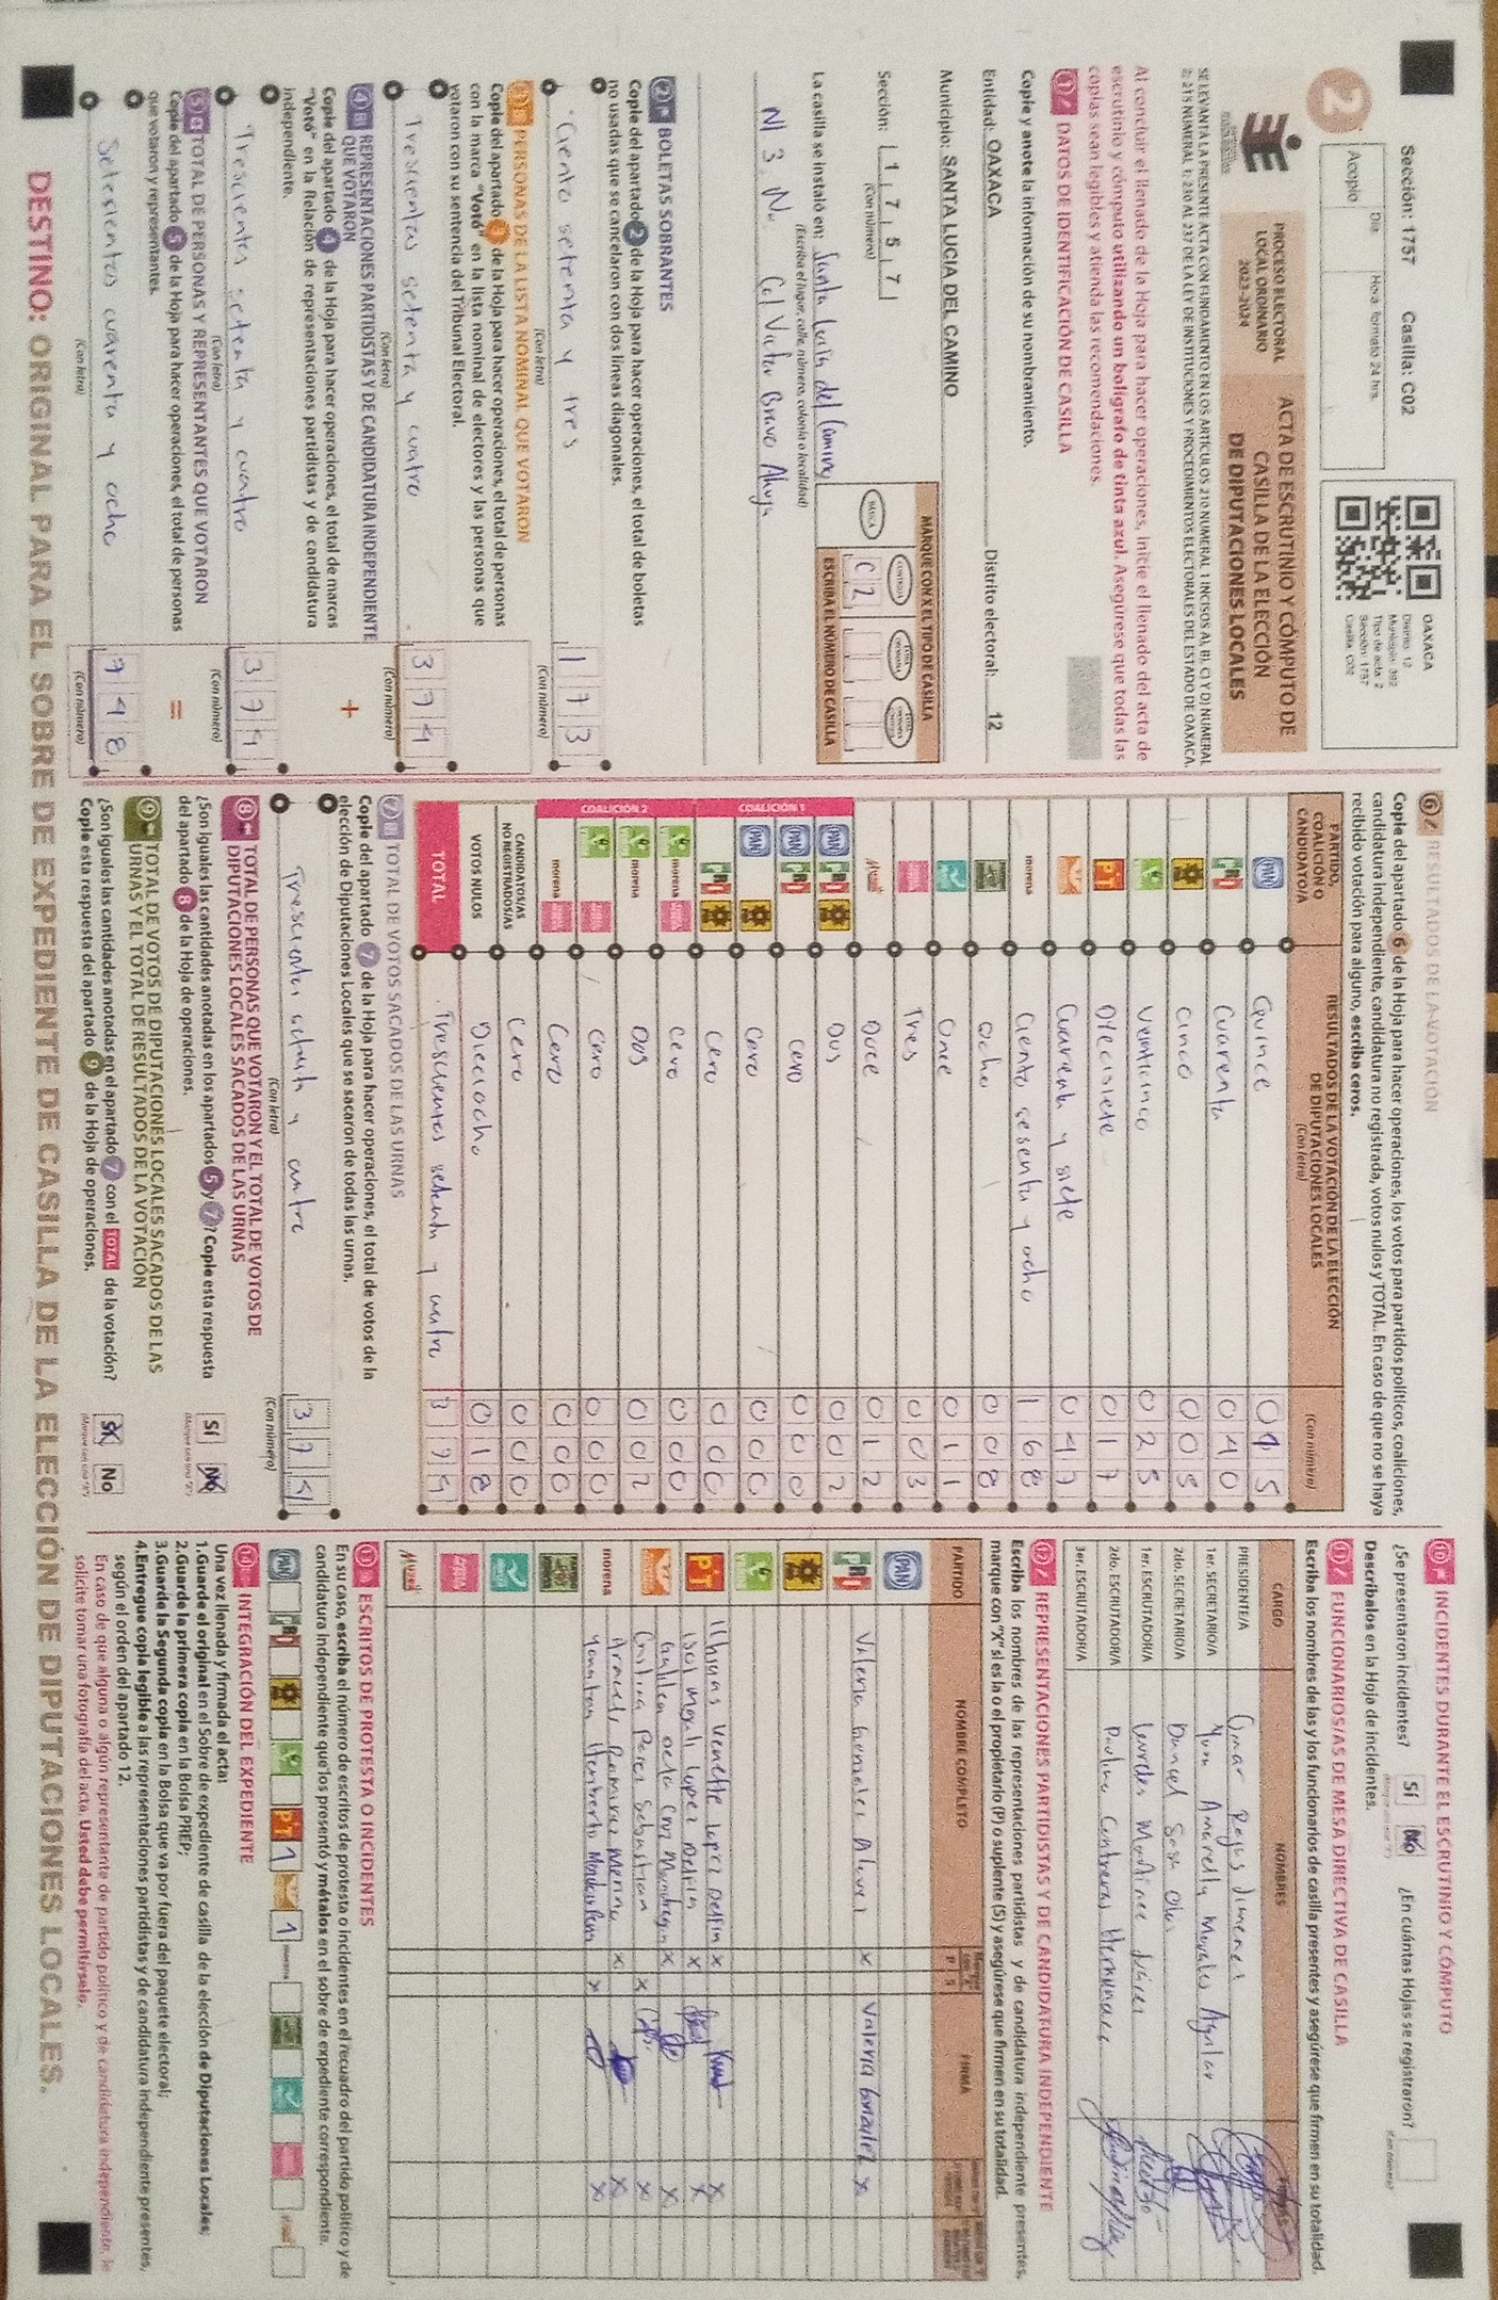 Sección: 1757 Casilla: C02
Día Hora: formato 24 hrs.
Acopio
2
OAXACA
Distrito: 12
Municipio: 392
Tipo de acta: 2
Sección: 1757
Casilla: C02
PROCESO ELECTORAL
LOCAL ORDINARIO
2023-2024
ACTA DE ESCRUTINIO Y CÓMPUTO DE
CASILLA DE LA ELECCIÓN
DE DIPUTACIONES LOCALES
SE LEVANTA LA PRESENTE ACTA CON FUNDAMENTO EN LOS ARTÍCULOS 210 NUMERAL 1 INCISOS A), B), C) Y D) NUMERAL
2; 215 NUMERAL 1; 230 AL 237 DE LA LEY DE INSTITUCIONES Y PROCEDIMIENTOS ELECTORALES DEL ESTADO DE OAXACA.
Al concluir el llenado de la Hoja para hacer operaciones, inicie el llenado del acta de
escrutinio y cómputo utilizando un bolígrafo de tinta azul. Asegúrese que todas las
copias sean legibles y atienda las recomendaciones.
1 DATOS DE IDENTIFICACIÓN DE CASILLA
Copie y anote la información de su nombramiento.
Entidad: OAXACA Distrito electoral: 12
Municipio: SANTA LUCIA DEL CAMINO
Sección: 1 7 5 7
(Con número)
MARQUE CON X EL TIPO DE CASILLA
BÁSICA CONTIGUA
ESCRIBA EL NÚMERO DE CASILLA
C 2
La casilla se instaló en: Santa Lucía del Camino
(Escriba el lugar, calle, número, colonia o localidad)
Col Victor Bravo Ahuja
2 BOLETAS SOBRANTES
Copie del apartado 2 de la Hoja para hacer operaciones, el total de boletas
no usadas que se cancelaron con dos líneas diagonales.
Ciento setenta y tres 1 7 3
(Con letra) (Con número)
3 PERSONAS DE LA LISTA NOMINAL QUE VOTARON
Copie del apartado 3 de la Hoja para hacer operaciones, el total de personas
con la marca "Votó" en la lista nominal de electores y las personas que
votaron con su sentencia del Tribunal Electoral.
Trescientos setenta y cuatro 3 7 4
(Con letra) (Con número)
4 REPRESENTACIONES PARTIDISTAS Y DE CANDIDATURA INDEPENDIENTE
QUE VOTARON
Copie del apartado 4 de la Hoja para hacer operaciones, el total de marcas
"Votó" en la Relación de representaciones partidistas y de candidatura
independiente.
+
Trescientos setenta y cuatro 3 7 4
(Con letra) (Con número)
5 TOTAL DE PERSONAS Y REPRESENTANTES QUE VOTARON
Copie del apartado 5 de la Hoja para hacer operaciones, el total de personas
que votaron y representantes.
=
Setesientos cuarenta y ocho 7 4 8
(Con letra) (Con número)
6 RESULTADOS DE LA VOTACIÓN
Copie del apartado 6 de la Hoja para hacer operaciones, los votos para partidos políticos, coaliciones,
candidatura independiente, candidatura no registrada, votos nulos y TOTAL. En caso de que no se haya
recibido votación para alguno, escriba ceros.
PARTIDO,
COALICIÓN O
CANDIDATO/A
RESULTADOS DE LA VOTACIÓN DE LA ELECCIÓN
DE DIPUTACIONES LOCALES
(Con letra)
(Con número)
PAN Quince 0 1 5
PRI Cuarenta 0 4 0
PRD cinco 0 0 5
VERDE Veinticinco 0 2 5
PT Diecisiete 0 1 7
Cuarenta y siete 0 4 7
morena Ciento sesenta y ocho 1 6 8
ocho 0 0 8
Once 0 1 1
Tres 0 0 3
MUJER Doce 0 1 2
COALICIÓN 1
PAN PRI PRD Dos 0 0 2
PAN PRI cero 0 0 0
PAN PRD Cero 0 0 0
PRI PRD Cero 0 0 0
COALICIÓN 2
VERDE morena Cero 0 0 0
VERDE morena Dos 0 0 2
VERDE Cero 0 0 0
morena Cero 0 0 0
CANDIDATOS/AS
NO REGISTRADOS/AS Cero 0 0 0
VOTOS NULOS Dieciocho 0 1 8
TOTAL Trescientos setenta y cuatro 3 7 4
7 TOTAL DE VOTOS SACADOS DE LAS URNAS
Copie del apartado 7 de la Hoja para hacer operaciones, el total de votos de la
elección de Diputaciones Locales que se sacaron de todas las urnas.
Trescientos setenta y cuatro 3 7 4
(Con letra) (Con número)
8 TOTAL DE PERSONAS QUE VOTARON Y EL TOTAL DE VOTOS DE
DIPUTACIONES LOCALES SACADOS DE LAS URNAS
¿Son iguales las cantidades anotadas en los apartados 5 y 7? Copie esta respuesta
del apartado 8 de la Hoja de operaciones.
Sí No
9 TOTAL DE VOTOS DE DIPUTACIONES LOCALES SACADOS DE LAS
URNAS Y EL TOTAL DE RESULTADOS DE LA VOTACIÓN
¿Son iguales las cantidades anotadas en el apartado 7 con el TOTAL de la votación?
Copie esta respuesta del apartado 9 de la Hoja de operaciones.
Sí No
10 INCIDENTES DURANTE EL ESCRUTINIO Y CÓMPUTO
¿Se presentaron incidentes? Sí No ¿En cuántas Hojas se registraron?
(Con número)
Descríbalos en la Hoja de Incidentes.
11 FUNCIONARIOS/AS DE MESA DIRECTIVA DE CASILLA
Escriba los nombres de las y los funcionarios de casilla presentes y asegúrese que firmen en su totalidad.
CARGO NOMBRES FIRMAS
PRESIDENTE/A Omar Rojas Jimenez
1er. SECRETARIO/A Yum Amarelly Morales Aguilar
2do. SECRETARIO/A Sosa
1er. ESCRUTADOR/A Lourdes Martinez
2do. ESCRUTADOR/A Paulina Contreras Hernandez
3er. ESCRUTADOR/A
12 REPRESENTACIONES PARTIDISTAS Y DE CANDIDATURA INDEPENDIENTE
Escriba los nombres de las representaciones partidistas y de candidatura independiente presentes,
marque con "X" si es la o el propietario (P) o suplente (S) y asegúrese que firmen en su totalidad.
PARTIDO NOMBRE COMPLETO P S FIRMA
PAN
PRI Valeria Gonzalez X Valeria Gonzalez X
PRD
VERDE
PT Venette Lopez Delfin X X
Isol Magali Lopez Delfin X X
Galilea Cruz X X
Perez Sebastian X X
morena Araceli Ramirez Merino X X
Yonatan Heriberto X X
MUJER
13 ESCRITOS DE PROTESTA O INCIDENTES
En su caso, escriba el número de escritos de protesta o incidentes en el recuadro del partido político y de
candidatura independiente que los presentó y métalos en el sobre de expediente correspondiente.
PAN PRI PRD VERDE PT 1 1 morena
14 INTEGRACIÓN DEL EXPEDIENTE
Una vez llenada y firmada el acta:
1.Guarde el original en el Sobre de expediente de casilla de la elección de Diputaciones Locales;
2.Guarde la primera copia en la Bolsa PREP;
3.Guarde la Segunda copia en la Bolsa que va por fuera del paquete electoral;
4.Entregue copia legible a las representaciones partidistas y de candidatura independiente presentes,
según el orden del apartado 12.
En caso de que alguna o algún representante de partido político y de candidatura independiente, le
solicite tomar una fotografía del acta. Usted debe permitírselo.
DESTINO: ORIGINAL PARA EL SOBRE DE EXPEDIENTE DE CASILLA DE LA ELECCIÓN DE DIPUTACIONES LOCALES.